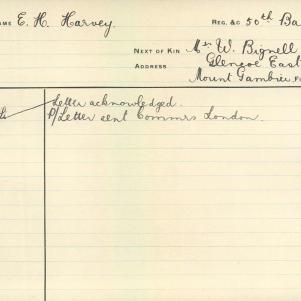 NAME E. H. Harvey.
REG. &C 50th Ba
NEXT OF KIN Mr W. Bignell
ADDRESS Glencoe East
Mount Gambier
Letter acknowledged.
P/Letter sent Commrs London.